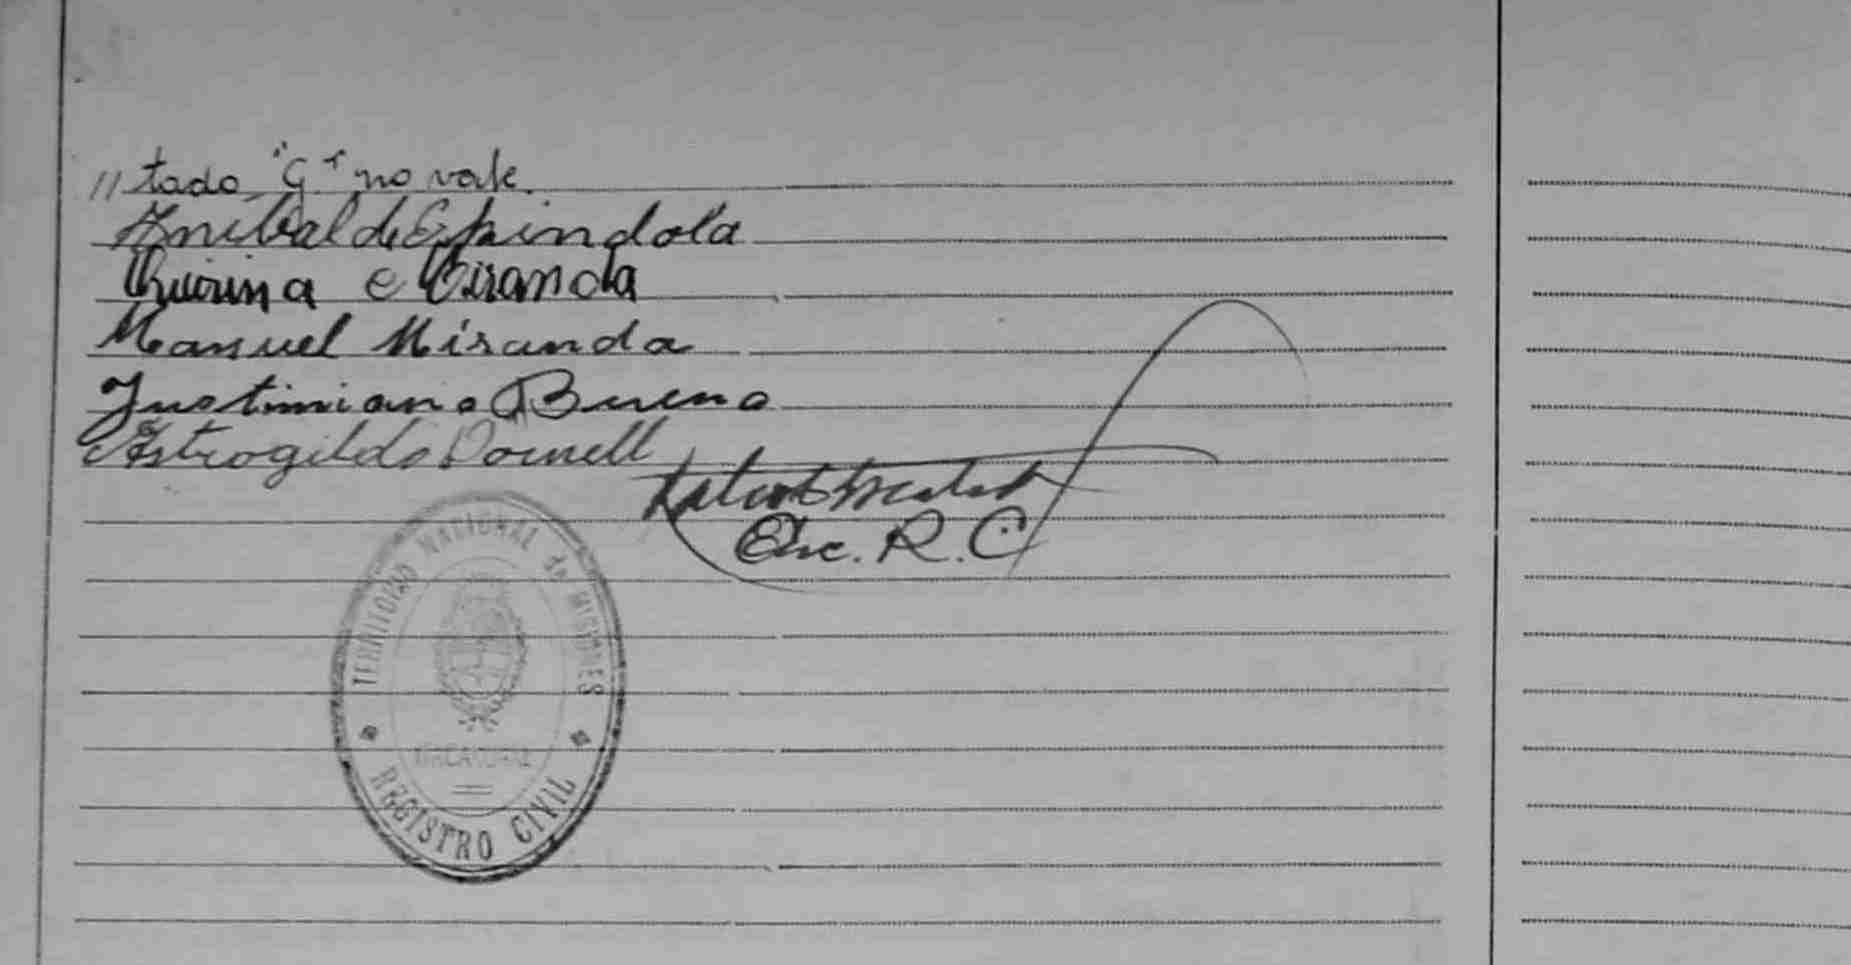 // tado "G" no vale.
Anibal de Espindola
Quirina e Miranda
Manuel Miranda
Justiniano Bueno
Astrogildo Dornell
Enc. R. C
TERRITORIO NACIONAL de MISIONES
REGISTRO CIVIL